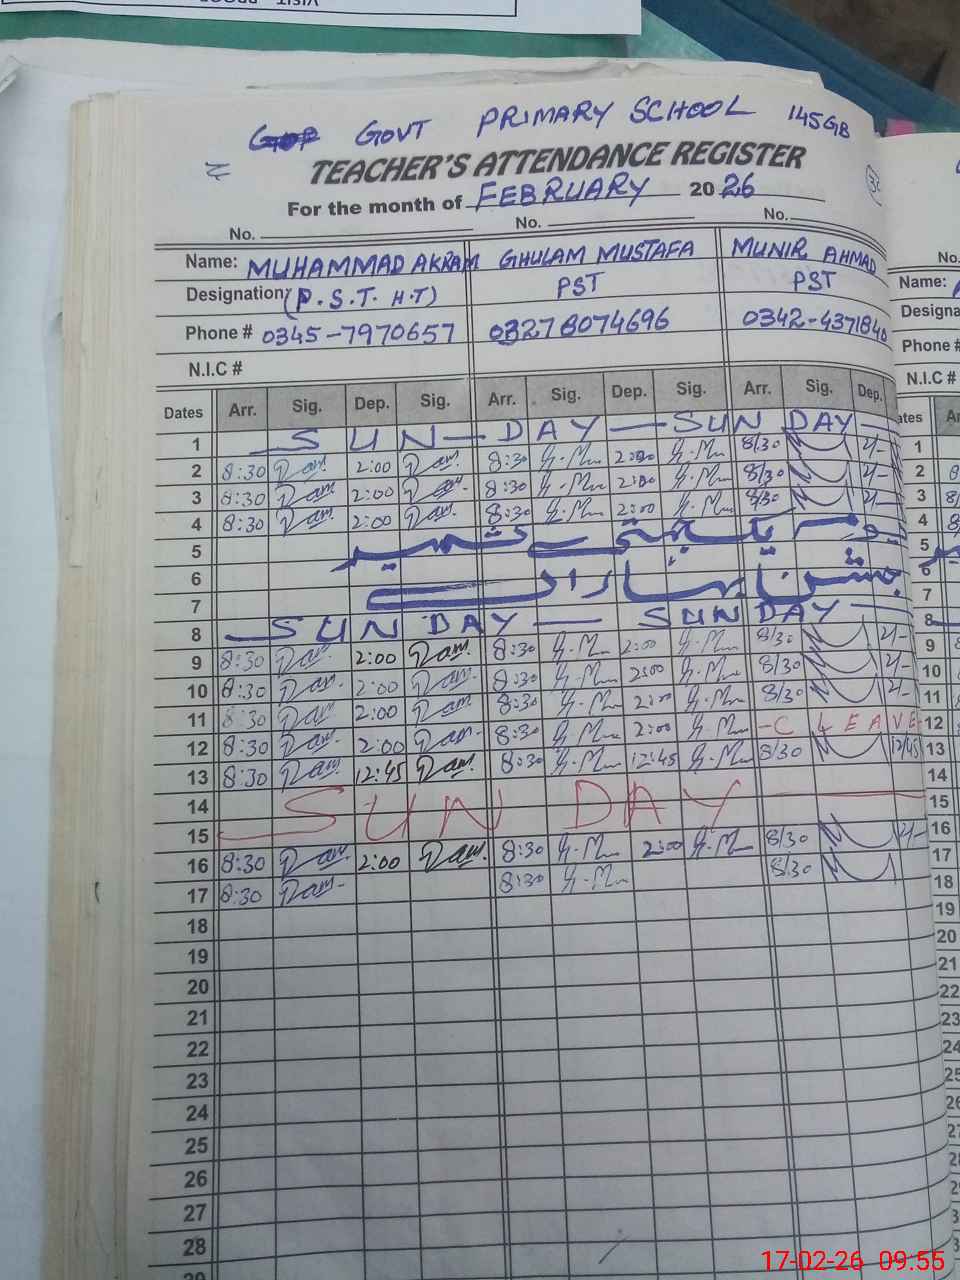 GOVT PRIMARY SCHOOL 145GB
TEACHER'S ATTENDANCE REGISTER
For the month of FEBRUARY 2026
No. No. No.
Name: MUHAMMAD AKRAM GHULAM MUSTAFA MUNIR AHMAD
Designation (P.S.T. H.T) PST PST
Phone # 0345-7970657 03278074696 0342-4371840
N.I.C #
Dates Arr. Sig. Dep. Sig. Arr. Sig. Dep. Sig. Arr. Sig. Dep.
1 SUN-DAY SUNDAY
2 8:30 2:00 8:30 2:00 8/30 2/-
3 8:30 2:00 8:30 2:00 8/30 2/-
4 8:30 2:00 8:30 2:00 8/30 2/-
5 یوم یکجہتی کشمیر
6
7 جشن بہاراں
8 SUNDAY SUNDAY
9 8:30 2:00 8:30 2:00 8/30 2/-
10 8:30 2:00 8:30 2:00 8/30 2/-
11 8:30 2:00 8:30 2:00 8/30 2/-
12 8:30 2:00 8:30 2:00 C LEAVE
13 8:30 12:45 8:30 12:45 8/30 12/45
14
15 SUN DAY
16 8:30 2:00 8:30 2:00 8/30 2/-
17 8:30 8:30 8/30
18
19
20
21
22
23
24
25
26
27
28
17-02-26 09.55